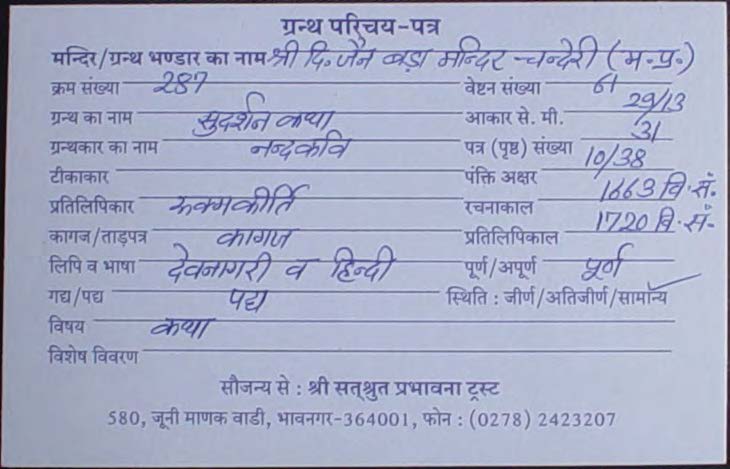 ग्रन्थ परिचय-पत्र
मन्दिर/ग्रन्थ भण्डार का नाम श्री दि. जैन बड़ा मन्दिर चन्देरी (म.प्र.)
क्रम संख्या 287 वेष्टन संख्या 61
ग्रन्थ का नाम सुदर्शन कथा आकार से. मी. 29/13
ग्रन्थकार का नाम नन्दकवि पत्र (पृष्ठ) संख्या 31
टीकाकार पंक्ति अक्षर 10/38
प्रतिलिपिकार रुक्मकीर्ति रचनाकाल 1663 वि.सं.
कागज/ताड़पत्र कागज प्रतिलिपिकाल 1720 वि.सं.
लिपि व भाषा देवनागरी व हिन्दी पूर्ण/अपूर्ण पूर्ण
गद्य/पद्य पद्य स्थिति : जीर्ण/अतिजीर्ण/सामान्य
विषय कथा
विशेष विवरण
सौजन्य से : श्री सत्श्रुत प्रभावना ट्रस्ट
580, जूनी माणक वाडी, भावनगर-364001, फोन : (0278) 2423207